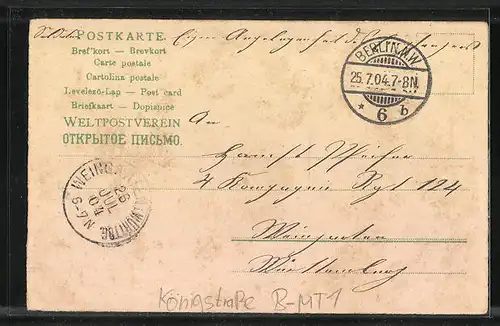 POSTKARTE.
Brefkort — Brevkort
Carte postale
Cartolina postale
Levelező-Lap — Post card
Briefkaart — Dopisnice
WELTPOSTVEREIN
ОТКРЫТОЕ ПИСЬМО.
BERLIN.N.W.
25.7.04.7-8N.
* 6 b
WEINGARTEN
26
JUL
04
6-7 N
An
4 Kompagnie Rgt 124
Weingarten
Württemberg
Königstraße B-MT1